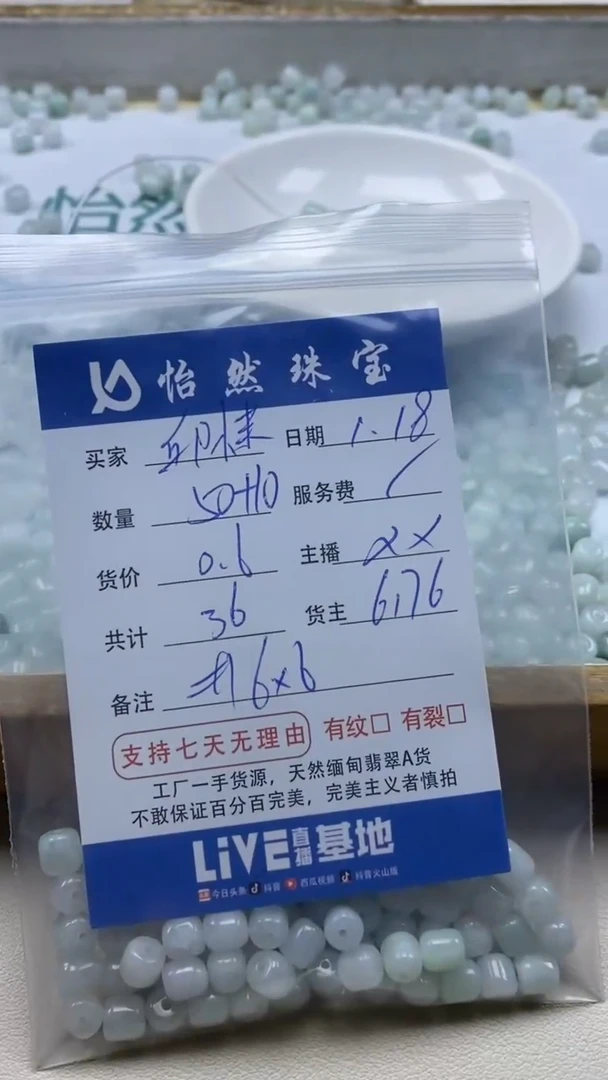 怡然
怡然珠宝
买家 邱健 日期 1.18
数量 50+10 服务费 /
货价 0.6 主播 XX
共计 36 货主 6176
备注 6x6
支持七天无理由 有纹□ 有裂□
工厂一手货源，天然缅甸翡翠A货
不敢保证百分百完美，完美主义者慎拍
LiVE直播基地
今日头条 抖音 西瓜视频 抖音火山版